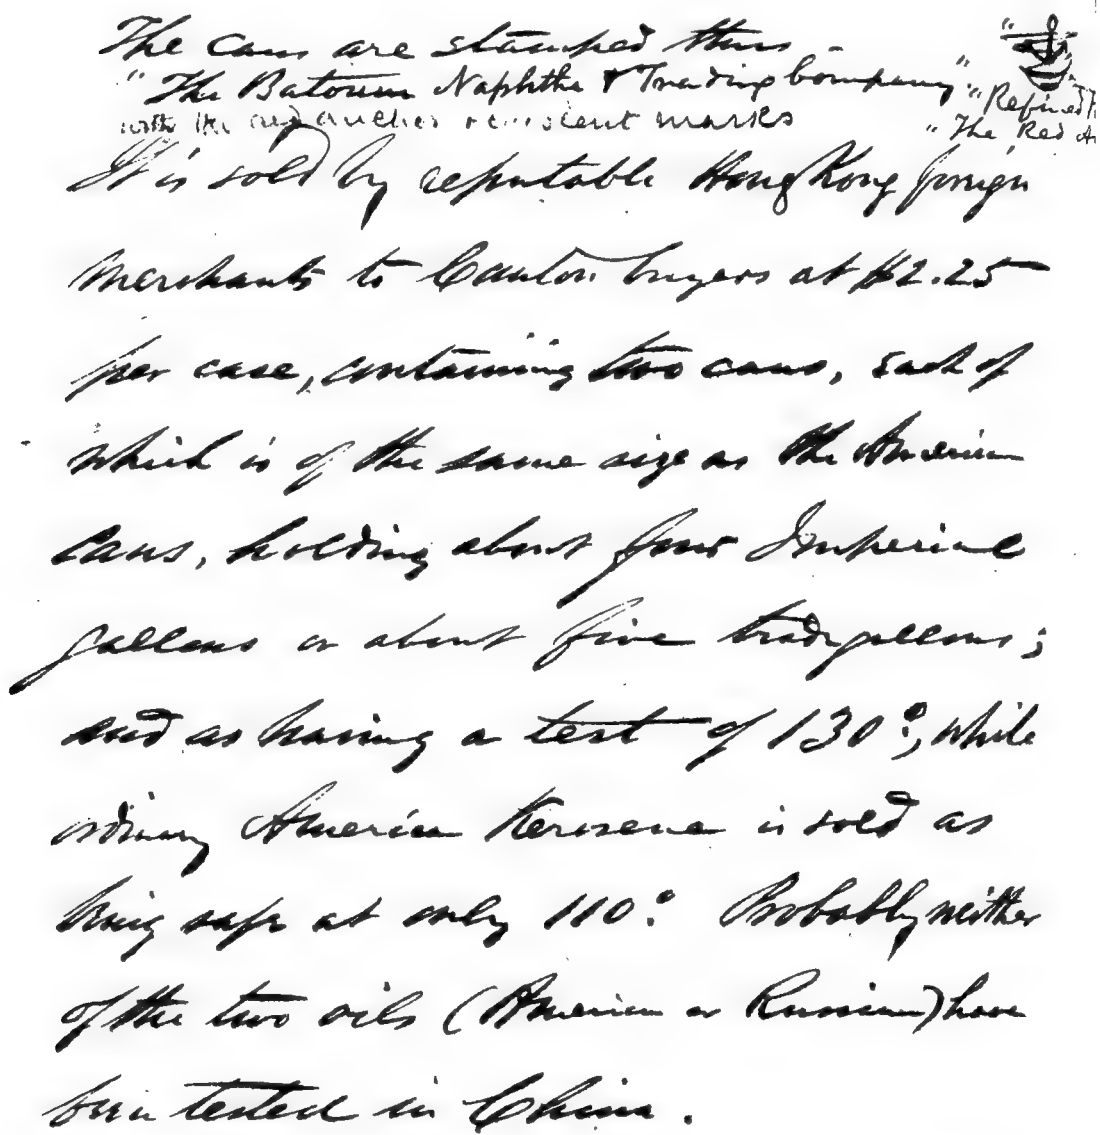 The cans are stamped thus -
"The Batoum Naphtha & Trading Company" "Refined
with the red anchor marks "The Red
It is sold by reputable Hong Kong foreign
merchants to Canton buyers at $2.25
per case, containing two cans, each of
which is of the same size as the American
cans, holding about four Imperial
gallons or about five trade gallons;
and as having a test of 130°, while
ordinary American Kerosene is sold as
being safe at only 110°. Probably neither
of the two oils (American or Russian) have
been tested in China.